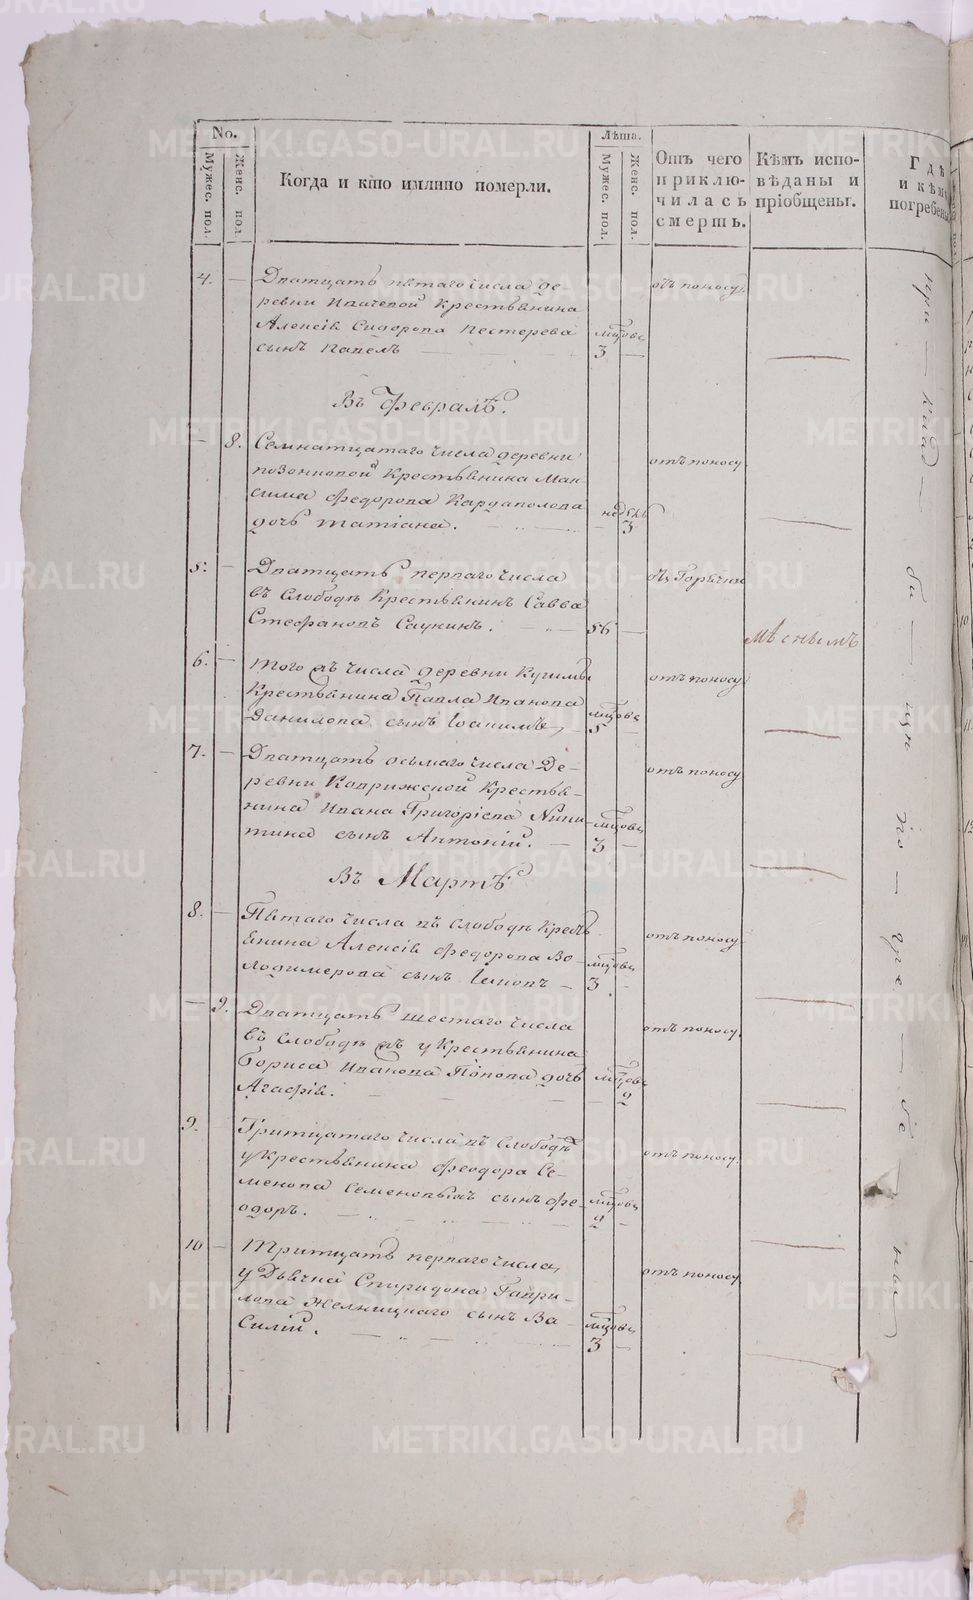 No.
Мужес. пол.
Женс. пол.
Когда и кто имяно померли.
Лѣта.
Мужес. пол.
Женс. пол.
Отъ чего
приклю-
чилась
смерть.
Кѣмъ испо-
вѣданы и
пріобщены.
Гдѣ
и кѣмъ
погребены
4. — Дватцать пятаго числа де-
ревни крестьянина
Алексія Сидорова Нестерева
сынъ Павелъ
мцовъ
3 —
отъ поносу.
Въ Февралѣ.
— 8. Семнатцатаго числа деревни
крестьянина Мак-
сима Федорова Кардаполова
дочь Татіана.
недѣль
— 3
отъ поносу
5. — Дватцать перваго числа
въ слободѣ крестьянинъ Савва
Стефановъ Саукинъ.
56 —
отъ Горячки
6. — Того жъ числа деревни
крестьянина Павла Иванова
Данилова сынъ Іоанимъ,
мцовъ
5 —
отъ поносу
7. — Дватцать осьмаго числа де-
ревни крестья-
нина Ивана Григоріева Ники-
тина сынъ Антоній.
мцовъ
3 —
отъ поносу
Въ Мартѣ
8. — Пятаго числа въ слободѣ крсть
янина Алексія Федорова Во-
лодимерова сынъ Іаковъ —
мцовъ
3. —
отъ поносу.
— 9. Дватцать шестаго числа
въ слободѣ жъ у крестьянина
Бориса Иванова Попова дочь
Агафія.
мцовъ
— 2
отъ поносу.
9. — Тритцатаго числа въ слободѣ
у крестьянина Феодора Се-
менова Семеновыхъ сынъ Фе-
одоръ.
мцовъ
2 —
отъ поносу.
10 — Тритцать перваго числа,
у Дьячка Спиридона Гаври-
лова сынъ Ва-
силій.
мцовъ
3 —
отъ поносу
при
METRIKI.GASO-URAL.RU